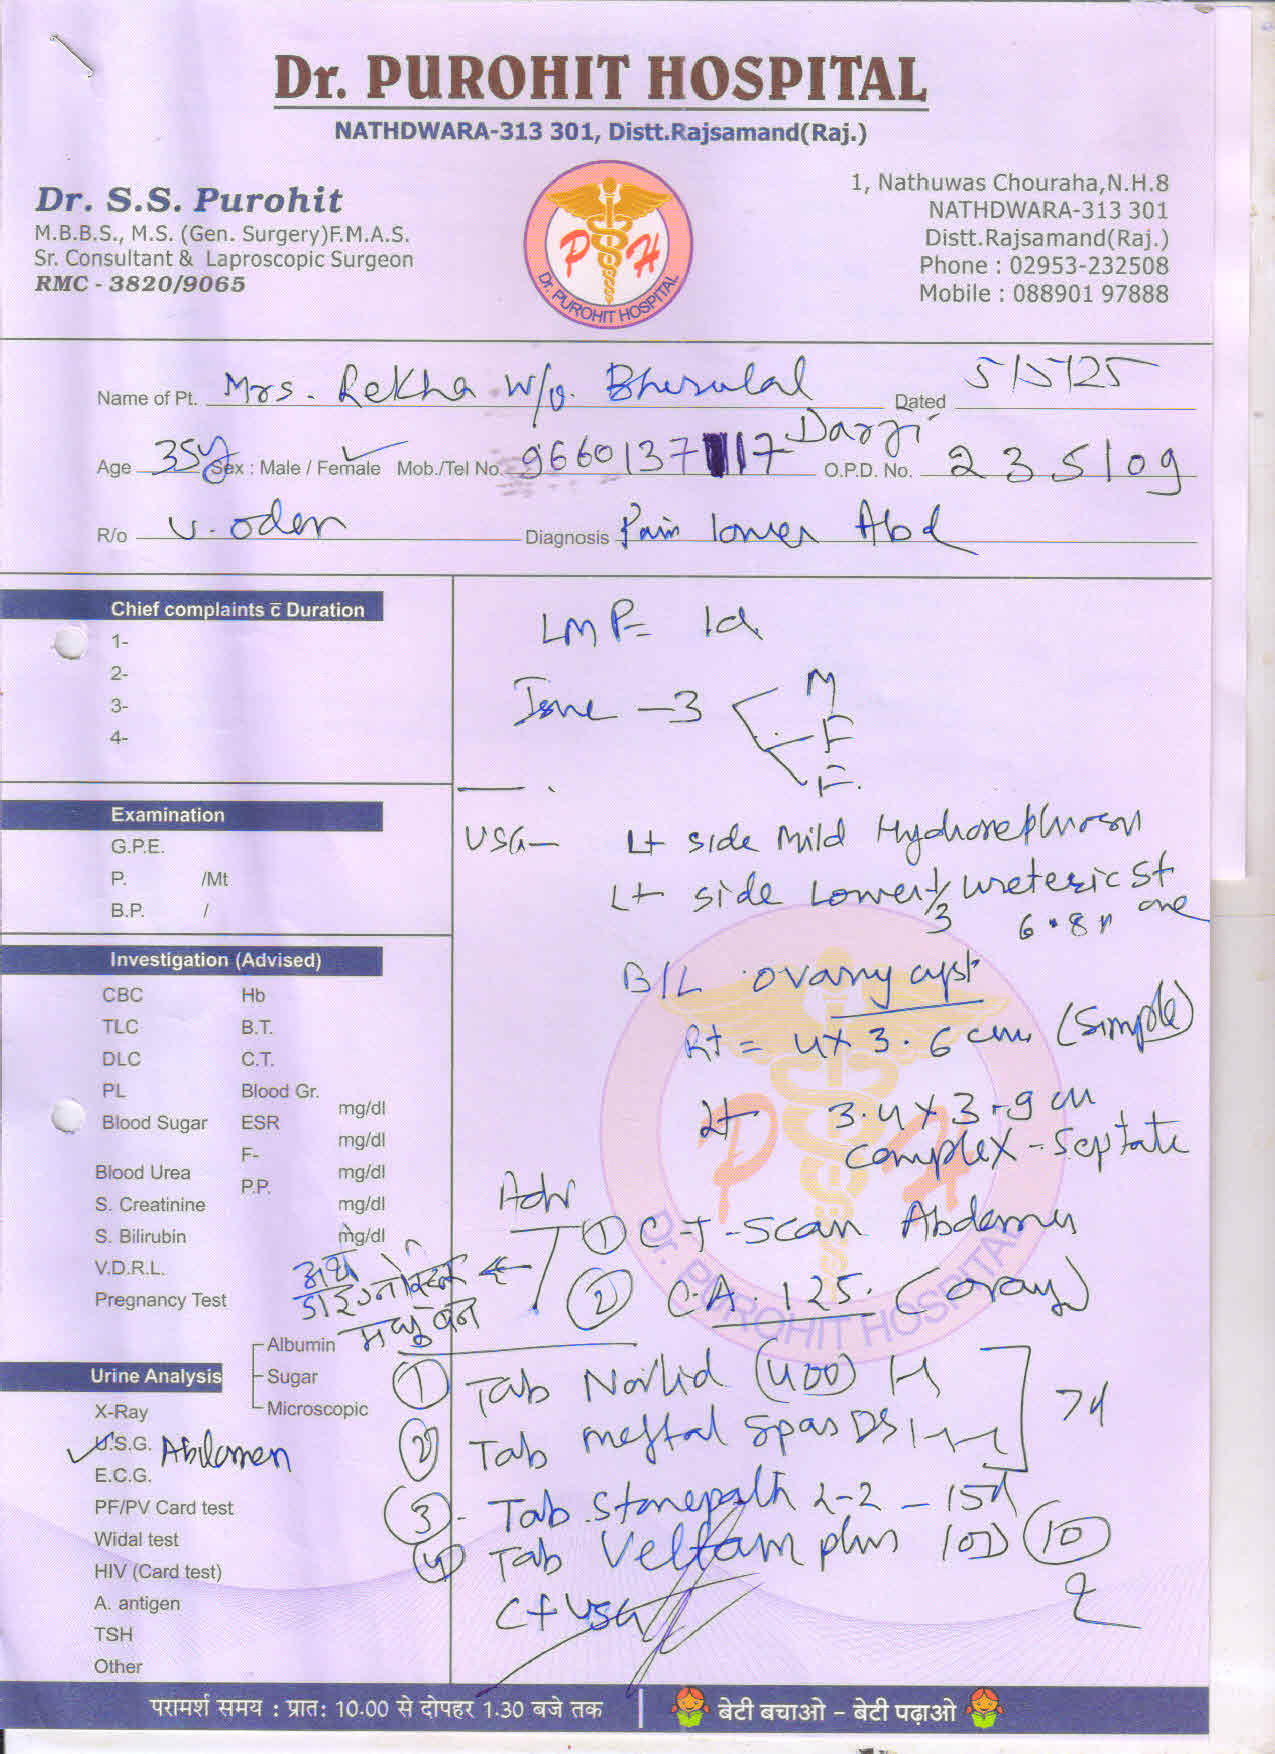 Dr. PUROHIT HOSPITAL
NATHDWARA-313 301, Distt.Rajsamand(Raj.)
Dr. S.S. Purohit
M.B.B.S., M.S. (Gen. Surgery)F.M.A.S.
Sr. Consultant & Laproscopic Surgeon
RMC - 3820/9065
PH
Dr. PUROHIT HOSPITAL
1, Nathuwas Chouraha,N.H.8
NATHDWARA-313 301
Distt.Rajsamand(Raj.)
Phone : 02953-232508
Mobile : 088901 97888
Name of Pt. Mrs. Rekha w/o. Bherulal Darji Dated 5/5/25
Age 35y Sex : Male / Female Mob./Tel No. 9660137117 O.P.D. No. 235109
R/o v. oden Diagnosis Pain lower Abd
Chief complaints c̄ Duration
1-
2-
3-
4-
Examination
G.P.E.
P. /Mt
B.P. /
Investigation (Advised)
CBC Hb
TLC B.T.
DLC C.T.
PL Blood Gr.
mg/dl
Blood Sugar ESR
mg/dl
F-
Blood Urea mg/dl
P.P.
S. Creatinine mg/dl
S. Bilirubin mg/dl
V.D.R.L.
Pregnancy Test
Urine Analysis
Albumin
Sugar
Microscopic
X-Ray
U.S.G. Abdomen
E.C.G.
PF/PV Card test
Widal test
HIV (Card test)
A. antigen
TSH
Other
LMP= 1d
Issue - 3
M
F
F.
USG- Lt side mild Hydronephrosis
Lt side Lower 1/3 ureteric stone
6.8
B/L ovary cyst
Rt = 4x3.6 cm (simple)
Lt 3.4x3.9 cm
complex - septate
Adv
① C-T-Scan Abdomen
② C.A. 125. (ovary)
① Tab Norlid (400)
② Tab meftal spas DS
7d
③ - Tab Stonepath 2-2 - 15d
④ Tab Veltam plus 10D (10)
Dr. PUROHIT HOSPITAL
परामर्श समय : प्रात: 10.00 से दोपहर 1.30 बजे तक
बेटी बचाओ - बेटी पढ़ाओ